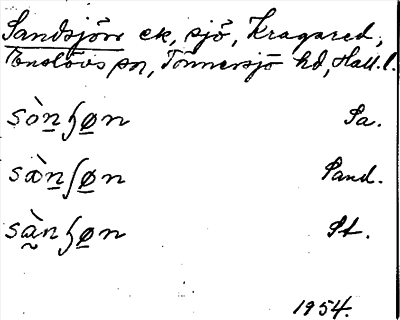 Sandsjön ek, sjö, Kragared,
Enslövs sn, Tönnersjö hd, Hall. l.
sònʃøn Sa.
sànʃøn Sand.
sànʃøn St.
1954.